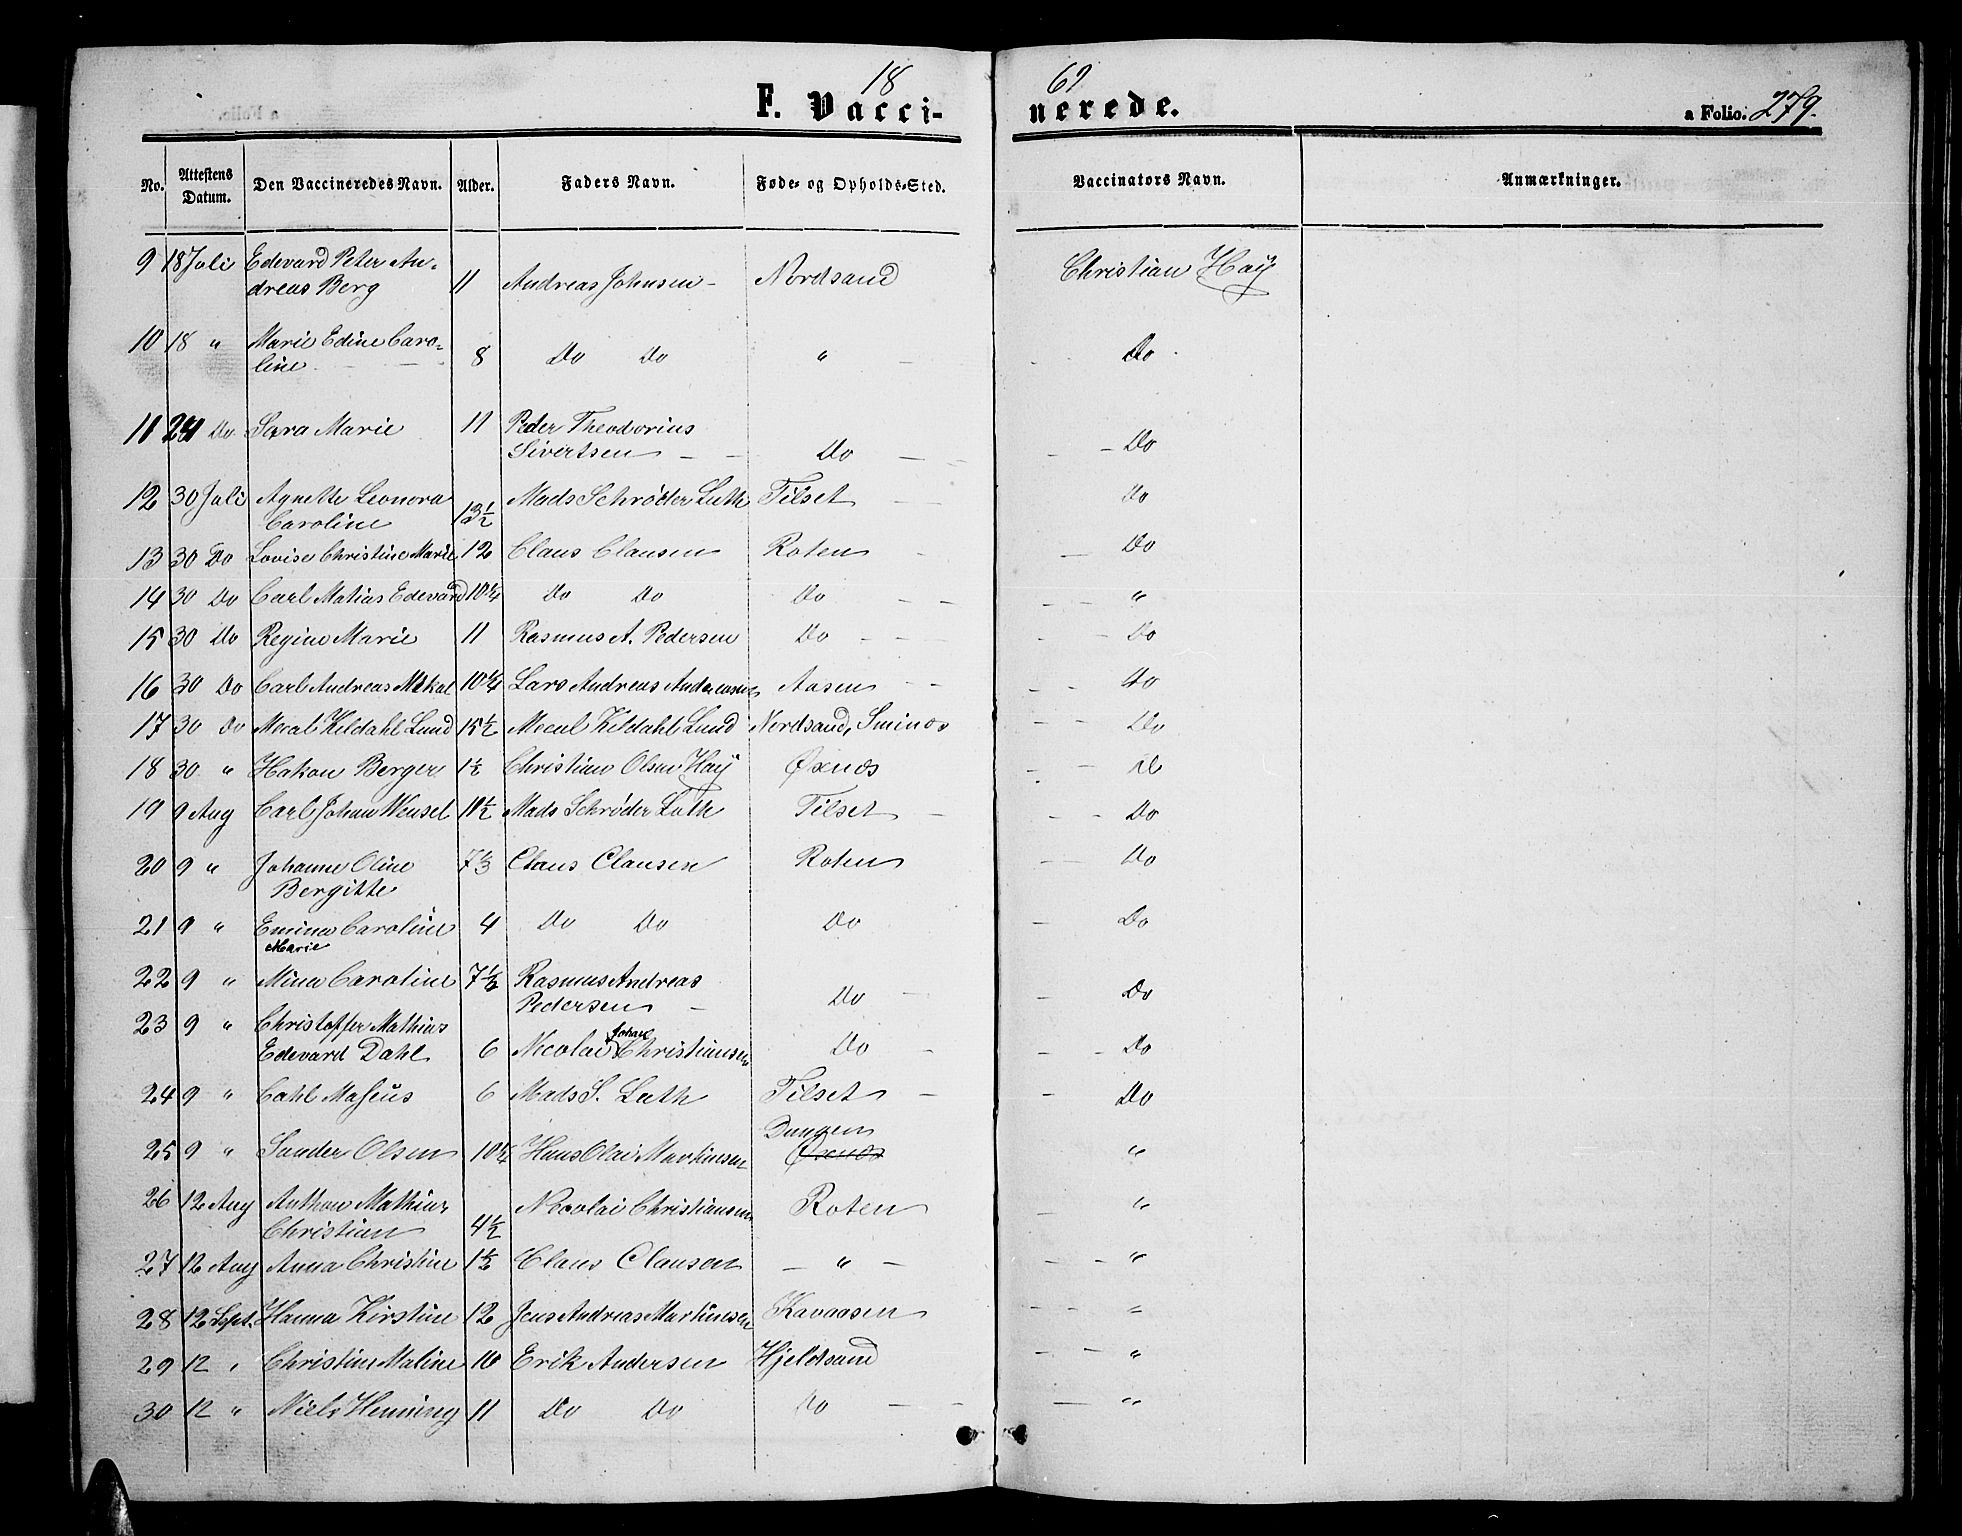 18 69
F. Vacci- nerede. a Folio. 279.
No. Attestens Datum. Den Vaccineredes Navn. Alder. Faders Navn. Føde- og Opholds-Sted. Vaccinators Navn. Anmærkninger.
9 18 Juli Edevard Peter An-
dreas Berg 11 Andreas Johnsen - Nordsand Christian Haÿ
10 18 " Marie Edine Caro-
line 8 Do Do " Do
11 24 Do Sara Marie 11 Peder Theodorius
Sivertsen Do Do
12 30 Juli Agnette Leonora Mads Schrøder Luth Tilset Do
Caroline 13½
13 30 Do Lovise Christine Marie 12 Claus Clausen Roten Do
14 30 Do Carl Matias Edevard 10¼ Do Do Do "
15 30 Do Regine Marie 11 Rasmus A. Pedersen Do Do
16 30 Do Carl Andreas Mikal 10¼ Lars Andreas Andreasen Aasen Do
17 30 Do Meral Kildahl Lund 15½ Mecul Kildahl Lund Nordsand, Sminos Do
18 30 " Hakon Berger 1½ Christian Olsen Haÿ Øxnæs Do
19 9 Aug Carl Johan Wensel 10½ Mads Schrøder Luth Tilset Do
20 9 " Johanne Oline 7⅓ Claus Clausen Roten Do
Bergitte
21 9 " Emina Caroline 4 Do Do Do Do
Marie
22 9 " Mina Caroline 7½ Rasmus Andreas
Pedersen Do Do
23 9 " Christoffer Mathias
Edevard Dahl 6 Nicolai Johan Christiansen Do Do
24 9 " Cahl Masius 6 Mads S. Luth Tilset Do
Dungen
25 9 " Sander Olsen 10¼ Hans Olai Martinsen Øxnæs "
26 12 Aug Anthon Mathias Nicolai Christiansen Roten "
Christian 4½
27 12 Aug Anna Christine 1½ Claus Clausen - " - "
28 12 Sept. Hanna Kirstine 12 Jens Andreas Martinsen Kavaasen "
29 12 " Christine Maline 16 Erik Andersen Hjeldsand "
30 12 " Niels Henning 11 Do Do Do "